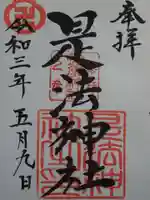 奉拝
是法神社
令和三年五月九日